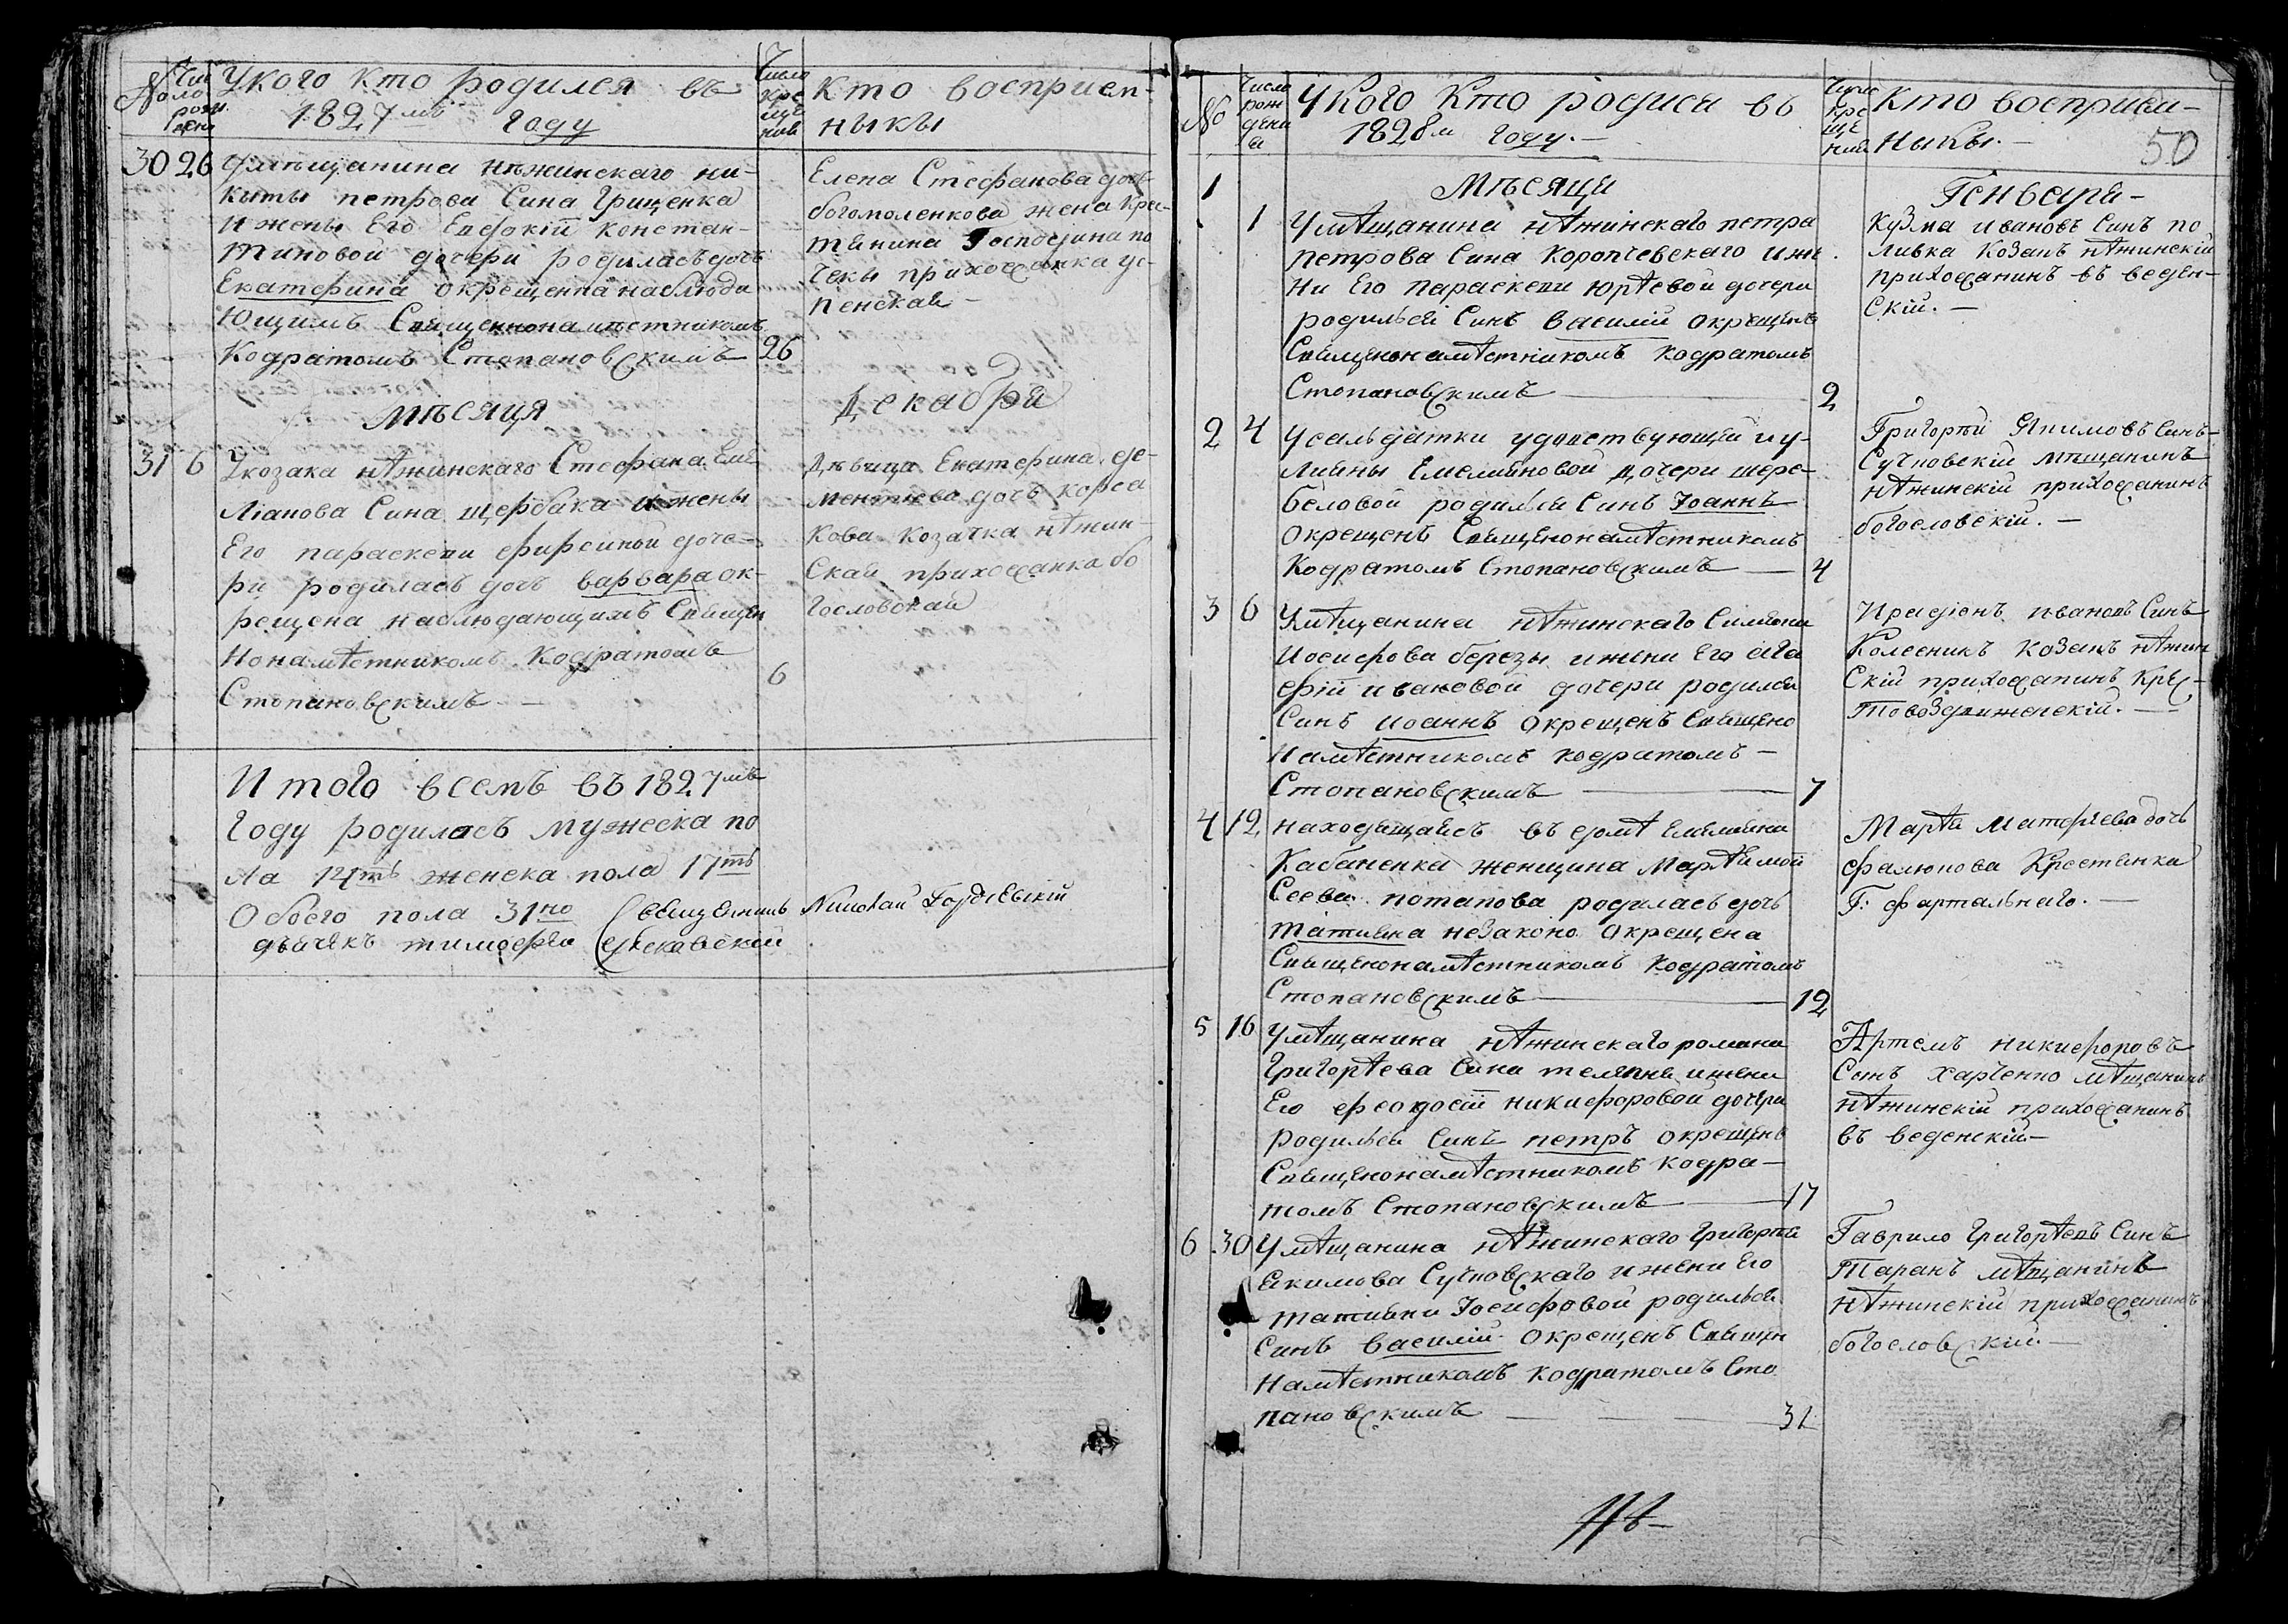 № Чи сло рож дени
Укого кто родился въ
1827мъ году
Число кре ще нія
Кто восприем-
ныкы
30 26 Умѣщанина нѣжинскаго ни-
киты петрова Сина Грищенка
И жены Его Евдокіи констан-
тиновой дочери родиласъ дочъ
Екатерина окрещенна наблюда
Ющимъ Священнонамѣстникомъ
Кодратомъ Стопановскимъ 26
Елена Стефанова дочъ
богомоленкова жена Кре-
тянина Господина по
чекы прихожанка ус-
пенская
Мѣсяця Декабря
31 6 Укозака нѣжинскаго Стефана Еме
Ліанова Сина щербака и жены
Его параскеви фирсиной доче-
ри родиласъ дочъ варвара ок-
рещена наблюдающимъ Священ
Нонамѣстникомъ Кодратомъ
Стопановскимъ 6
Дѣвица Екатерина де-
ментиева дочъ корса
кова козачка нѣжин-
Ская прихожанка бо
гословская
Итого всемъ въ 1827мъ
Году родилось мужеска по
ла 14тъ женска пола 17тъ
Обоего пола 31но Священникъ Николай Гордіевскій
дьячекъ тимофей
№ Число рож дени я
Укого Кто родися въ
1828м году.-
Число кре ще ния
Кто восприем-
ныкы.-
50
1 Мѣсяця Генваря-
1 Умѣщанина нѣжинскаго петра
петрова Сина Коропчевскаго и же
ни Его параскеви юрѣевой дочери
родился Синъ василій окрещенъ
Священонамѣстникомъ кодратомъ
Стопановскимъ 2
Кузма ивановъ Синъ по
ливка козакъ нѣжинскій
прихожанинъ въ веден-
скій.-
2 4 Усалдатки удовствующей иу-
лияны Емелияновой дочери щере-
беловой родился Синъ Іоаннъ
окрещенъ Священонамѣстникомъ
Кодратомъ Стопановскимъ 4
Григорѣй Якимовъ Синъ-
Сучковскій мѣщанинъ
нѣжинскій прихожанинъ
богословскій.-
3 6 Умѣщанина нѣжинскаго Симеона
Иосифова березы и жени Его ага
фіи ивановой дочери родился
Синъ иоаннъ окрещенъ Священо
Намѣстникомъ кодратомъ-
Стопановскимъ 7
Ирадіонъ ивановъ Синъ
Колесникъ козакъ нѣжин
Скій прихожанинъ Крес-
товоздвиженскій.-
4 12 находящаясъ въ домѣ Емелияна
Кабаненка женщина Марѣя мой
Сеева потапова родиласъ дочъ
татияна незаконо окрещена
Священонамѣстникомъ Кодратомъ
Стопановскимъ 12
Марѣя Матфіева дочъ
фалюнова Крестянка
Г: фартальнаго.-
5 16 Умѣщанина нѣжинскаго романа
Григорѣева Сина теляпня ижени
Его феодосіи никифоровой дочери
родился Синъ петръ окрещенъ
Священонамѣстникомъ кодра-
томъ Стопановскимъ 17
Артемъ никифоровъ
Синъ харченко мѣщанинъ
нѣжинскій прихожанинъ
въ веденскій-
6 30 Умѣщанина нѣжинскаго Григорѣя
Екимова Сучковскаго ижени Его
татияни Іосифовой родился
Синъ василій окрещенъ Священ
Намѣстникомъ кодратомъ Сто
пановскимъ 31
Гаврило Григорѣевъ Синъ
Таранъ мѣщанинъ
нѣжинскій прихожанинъ
богословскій.-